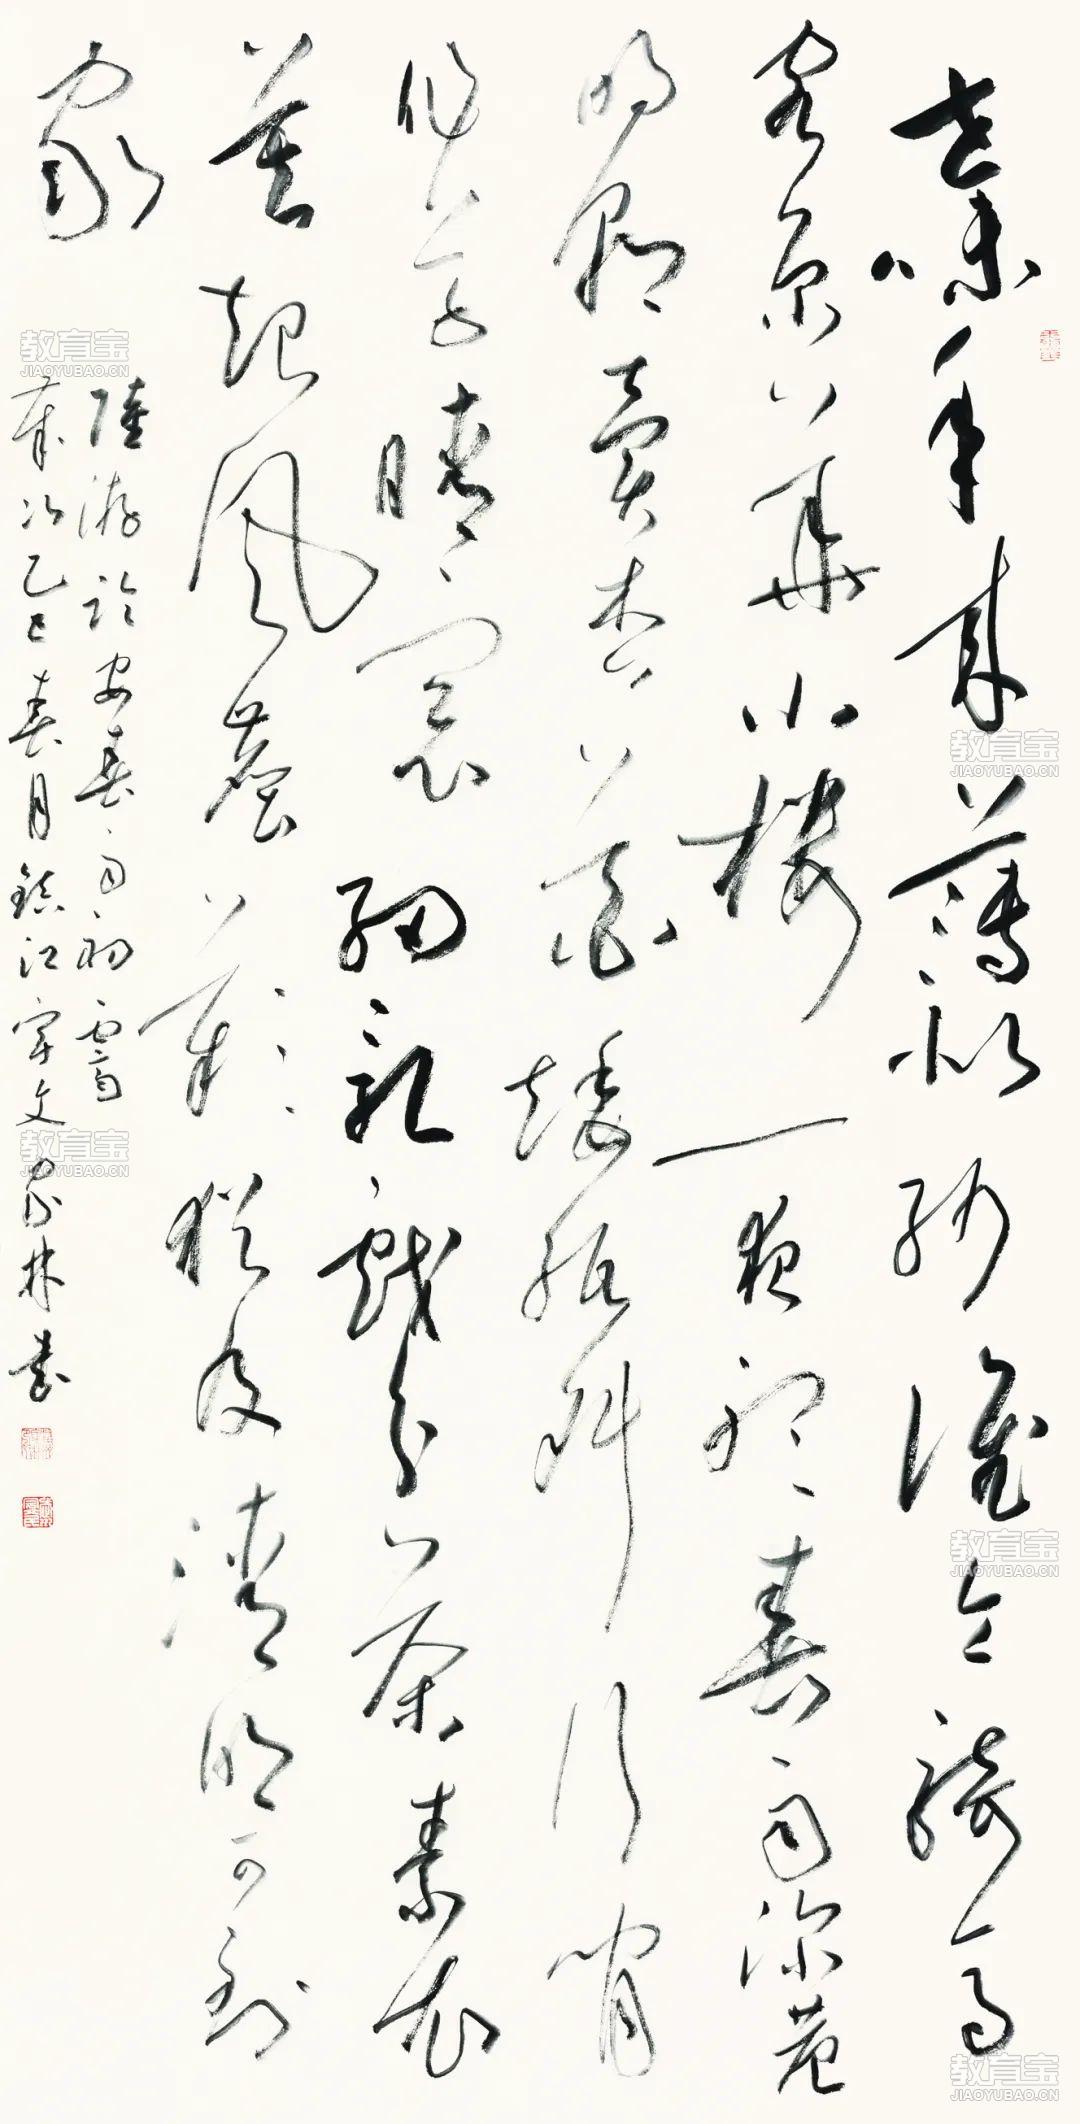 世味年来薄似纱谁令骑马
客京华小楼一夜听春雨深巷
明朝卖杏花矮纸斜行闲
作草晴窗细乳戏分茶素衣
莫起风尘叹犹及清明可到
家
陆游临安春雨初霁
岁次乙巳春月镇江宋文家林书
教育宝
JIAOYUBAO.CN
教育宝
JIAOYUBAO.CN
教育宝
JIAOYUBAO.CN
教育宝
JIAOYUBAO.CN
教育宝
JIAOYUBAO.CN